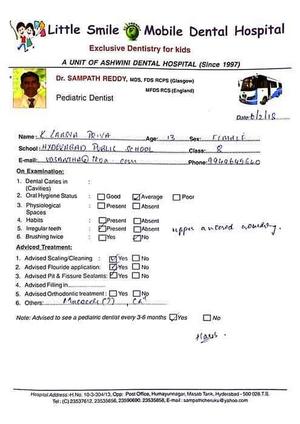 Little Smile Mobile Dental Hospital
Exclusive Dentistry for kids
A UNIT OF ASHWINI DENTAL HOSPITAL (Since 1997)
Dr. SAMPATH REDDY, MDS, FDS RCPS (Glasgow)
MFDS RCS (England)
Pediatric Dentist
Date: 6/2/18
Name: K LAASYA PRIYA Age: 13 Sex: FEMALE
School: HYDERABAD PUBLIC SCHOOL Class: 8
E-mail: Phone:
On Examination:
1. Dental Caries in :
(Cavities)
2. Oral Hygiene Status : Good Average Poor
3. Physiological : Present Absent
Spaces
4. Habits : Present Absent
5. Irregular teeth : Present Absent upper anterior crowding.
6. Brushing twice : Yes No
Adviced Treatment:
1. Advised Scaling/Cleaning : Yes No
2. Advised Flouride application: Yes No
3. Advised Pit & Fissure Sealants: Yes No
4. Advised Filling in
5. Advised Orthodontic treatment : Yes No
6. Others:
Note: Advised to see a pediatric dentist every 3-6 months Yes No
Hospital Address: H.No. 10-3-304/13, Opp: Post Office, Humayunnagar, Masab Tank, Hyderabad - 500 028.T.S.
Tel: (C) 23537612, 23535656, 23590690, 23535688, E-mail : sampathcheruku@yahoo.com